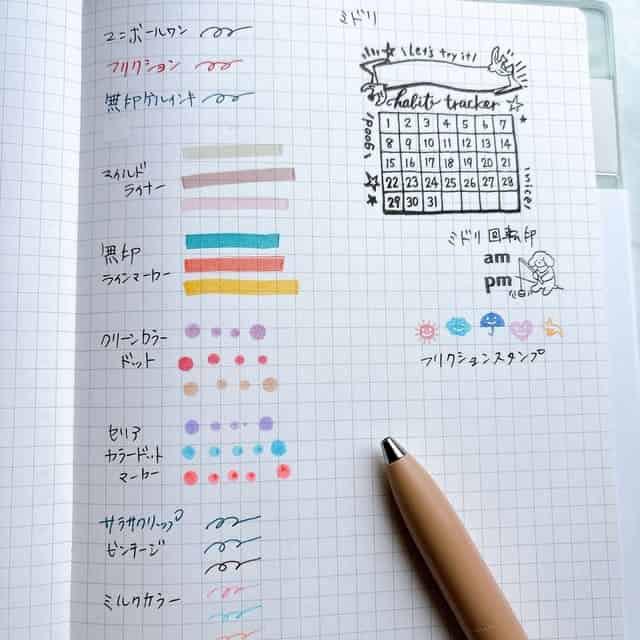 ユニボールワン
フリクション
無印ゲルインキ
マイルド
ライナー
無印
ラインマーカー
クリーンカラー
ドット
セリア
カラードット
マーカー
サラサクリップ
ビンテージ
ミルクカラー
ミドリ
Let's try it!
habit tracker
good!
nice!
1 2 3 4 5 6 7
8 9 10 11 12 13 14
15 16 17 18 19 20 21
22 23 24 25 26 27 28
29 30 31
ミドリ回転印
am
pm
フリクションスタンプ